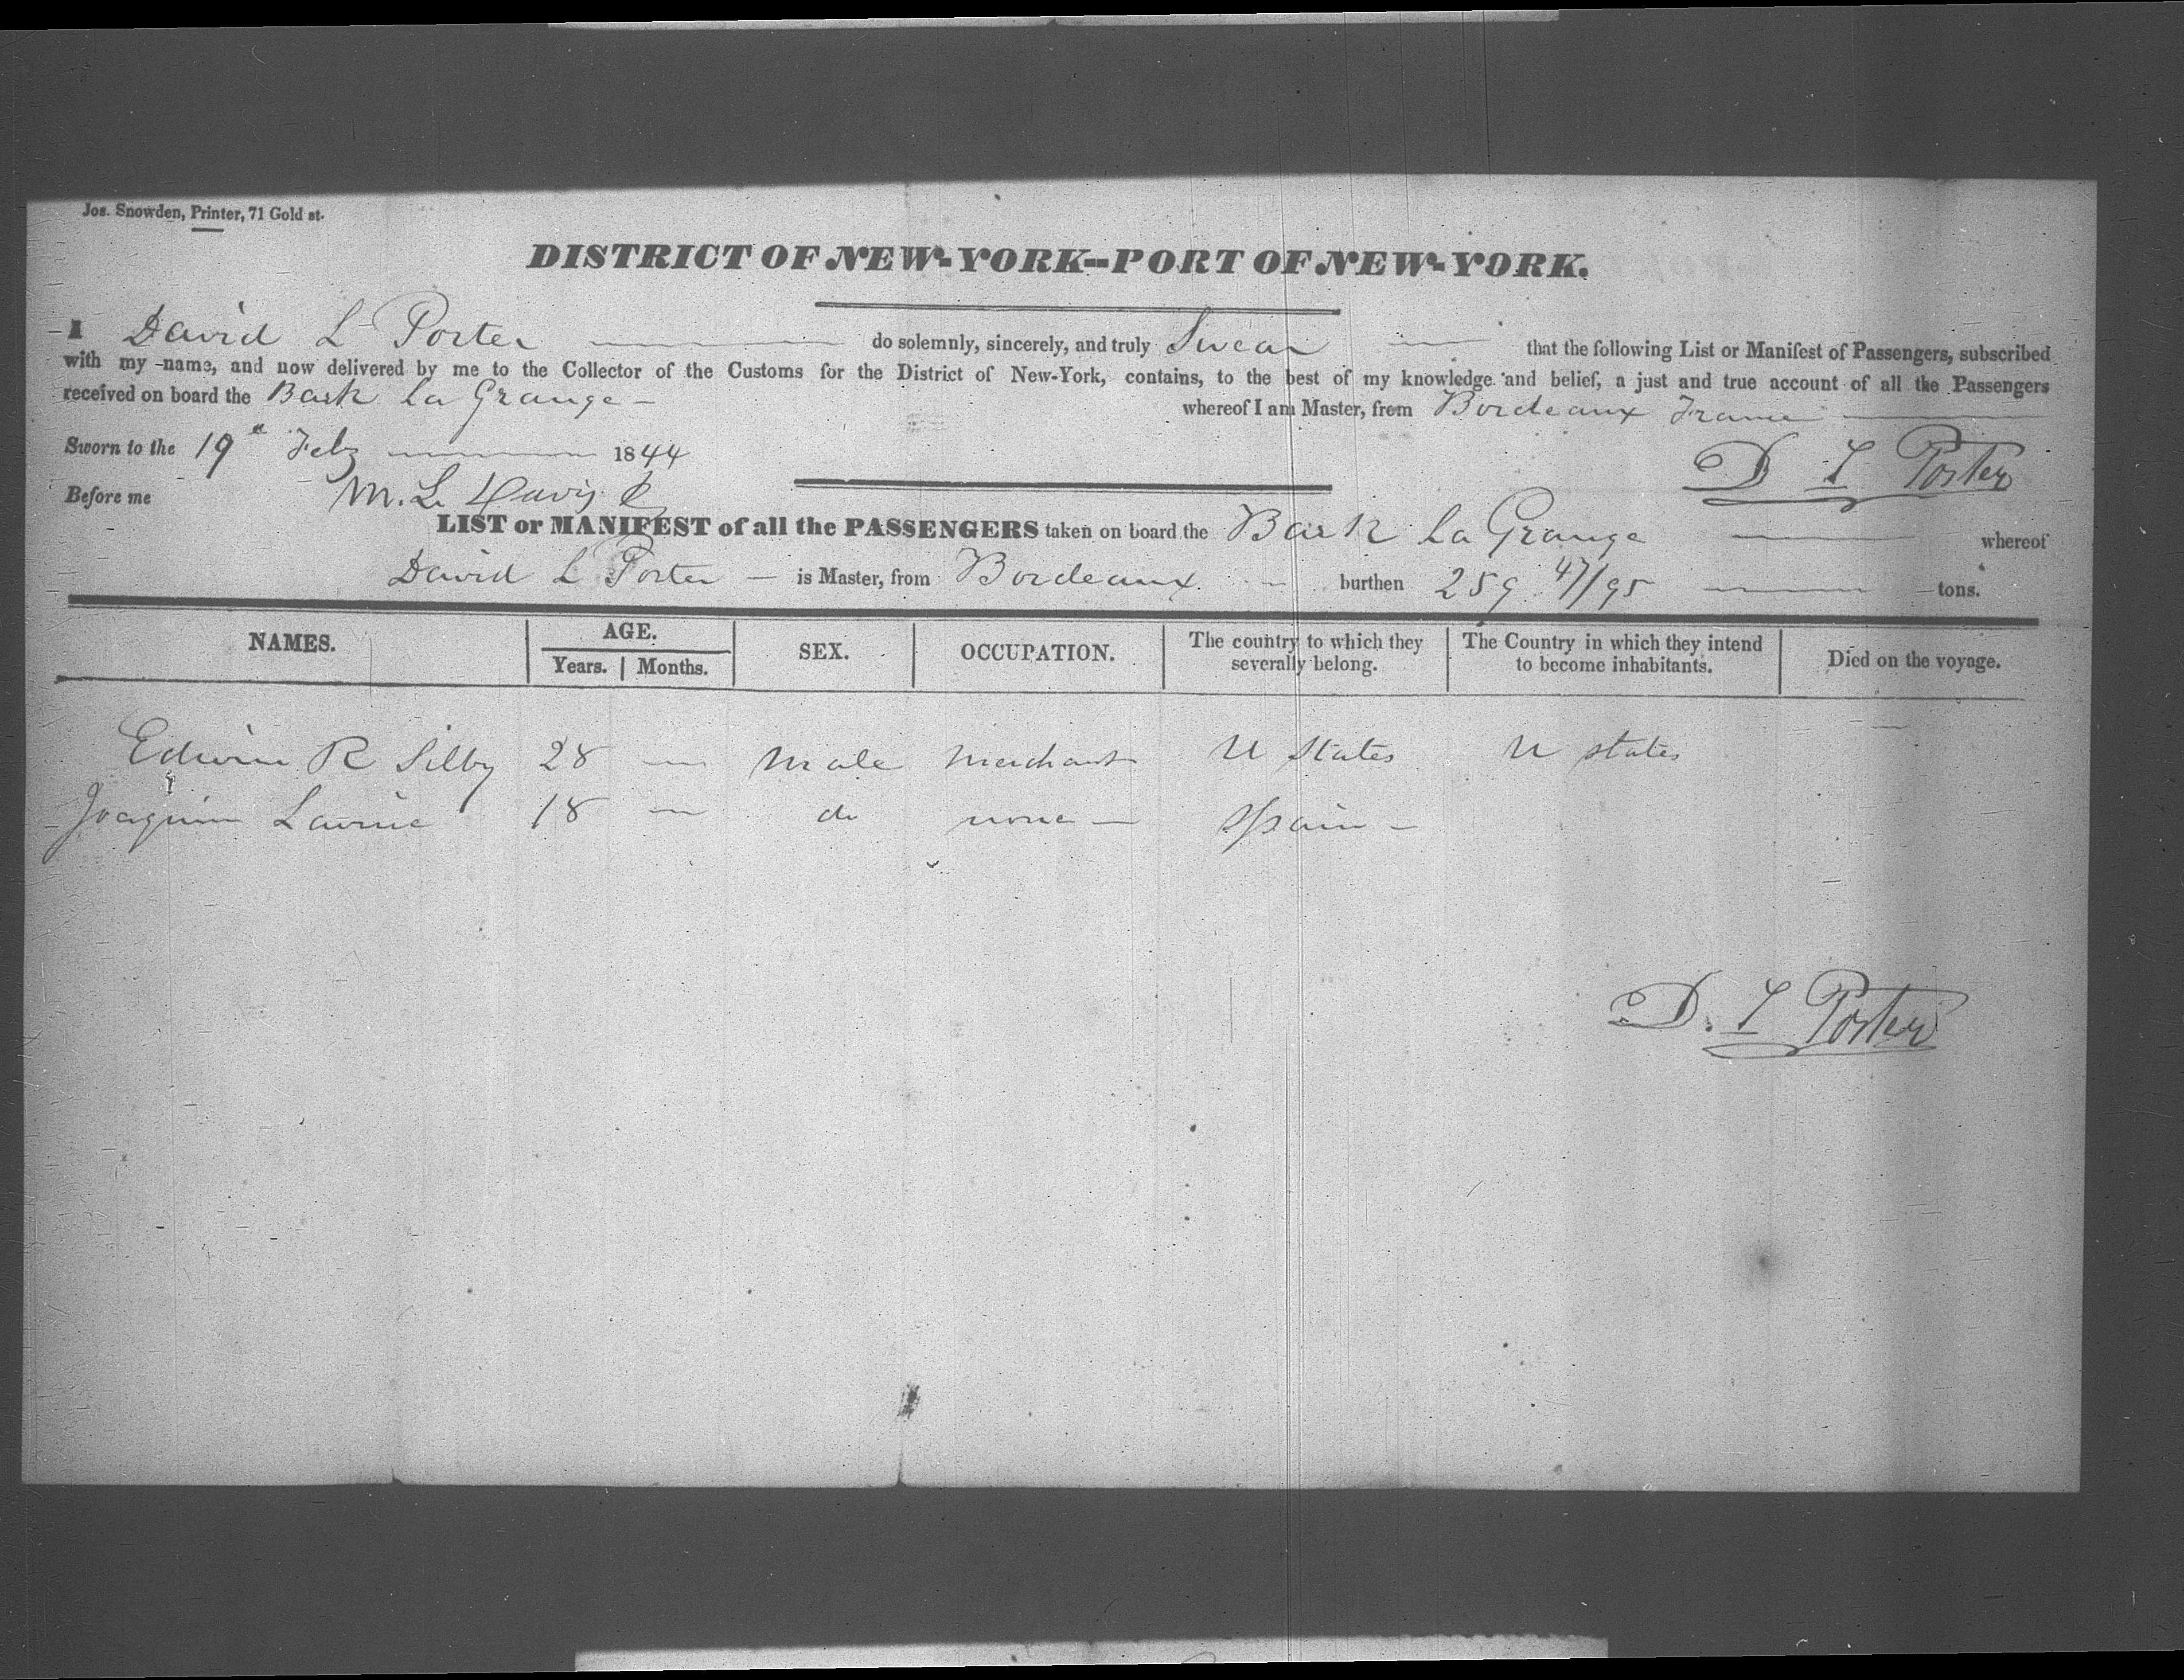 Jos. Snowden, Printer, 71 Gold st.
DISTRICT OF NEW-YORK--PORT OF NEW-YORK.
I David L Porter do solemnly, sincerely, and truly Swear that the following List or Manifest of Passengers, subscribed
with my name, and now delivered by me to the Collector of the Customs for the District of New-York, contains, to the best of my knowledge and belief, a just and true account of all the Passengers
received on board the Bark La Grange - whereof I am Master, from Bordeaux France
Sworn to the 19th Feby 1844
D L Porter
Before me M. L. Davis
LIST or MANIFEST of all the PASSENGERS taken on board the Bark La Grange whereof
David L Porter - is Master, from Bordeaux burthen 259 47/95 tons.
NAMES. AGE. Years. Months. SEX. OCCUPATION. The country to which they severally belong. The Country in which they intend to become inhabitants. Died on the voyage.
Edwin R Silby 28 — Male Merchant U States U States —
Joaquim 18 — do none — Spain -
D. L Porter